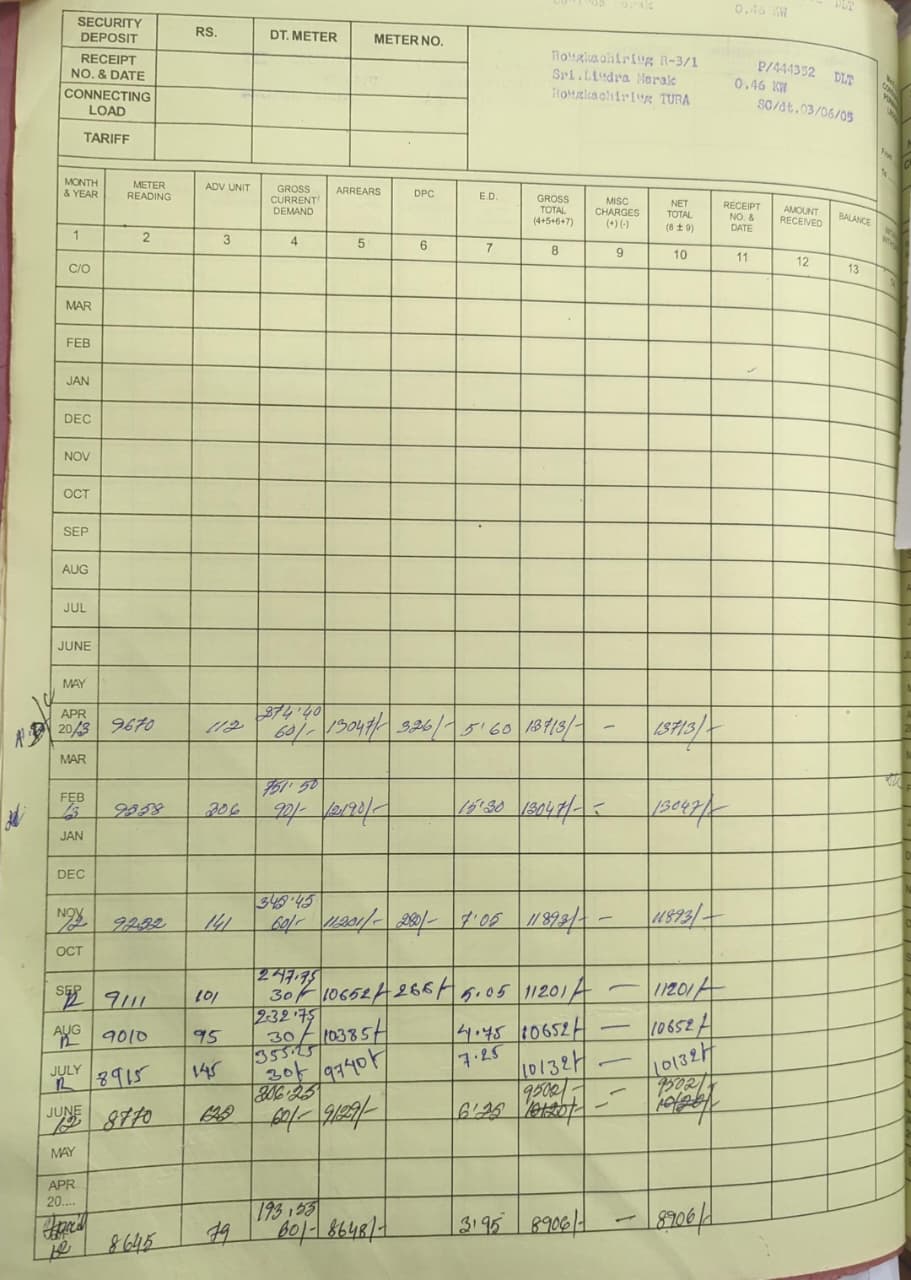 0.46 KW DLT
SECURITY DEPOSIT RS. DT. METER METER NO.
RECEIPT NO. & DATE
CONNECTING LOAD
TARIFF
Rongkachiring R-3/1 P/444352 DLT
Sri.Lindra Marak 0.46 KW
Rongkachiring TURA SC/dt.03/06/05
MONTH & YEAR METER READING ADV UNIT GROSS CURRENT/ DEMAND ARREARS DPC E.D. GROSS TOTAL (4+5+6+7) MISC CHARGES (+) (-) NET TOTAL (8 ± 9) RECEIPT NO. & DATE AMOUNT RECEIVED BALANCE
1 2 3 4 5 6 7 8 9 10 11 12 13
C/O
MAR
FEB
JAN
DEC
NOV
OCT
SEP
AUG
JUL
JUNE
MAY
APR 274.40
2013 9670 112 60/- 13047/- 326/- 5.60 13713/- - 13713/-
MAR
FEB 751.50
/3 9558 306 90/- 12190/- 15.30 13047/- - 13047/-
JAN
DEC
NOV 345.45
/12 9252 141 60/- 11201/- 280/- 7.05 11893/- - 11893/-
OCT
SEP 247.75
12 9111 101 30/- 10652/- 266/- 5.05 11201/- - 11201/-
AUG 232.75
12 9010 95 30/- 10385/- 4.75 10652/- - 10652/-
JULY 355.25
12 8915 145 30/- 9740/- 7.25 10132/- - 10132/-
JUNE 306.25 9502/- 9502/-
/12 8770 60/- 9129/- 6.25 10120/- - 10120/-
MAY
APR
20....
April 193.55
12 8645 79 60/- 8648/- 3.95 8906/- - 8906/-